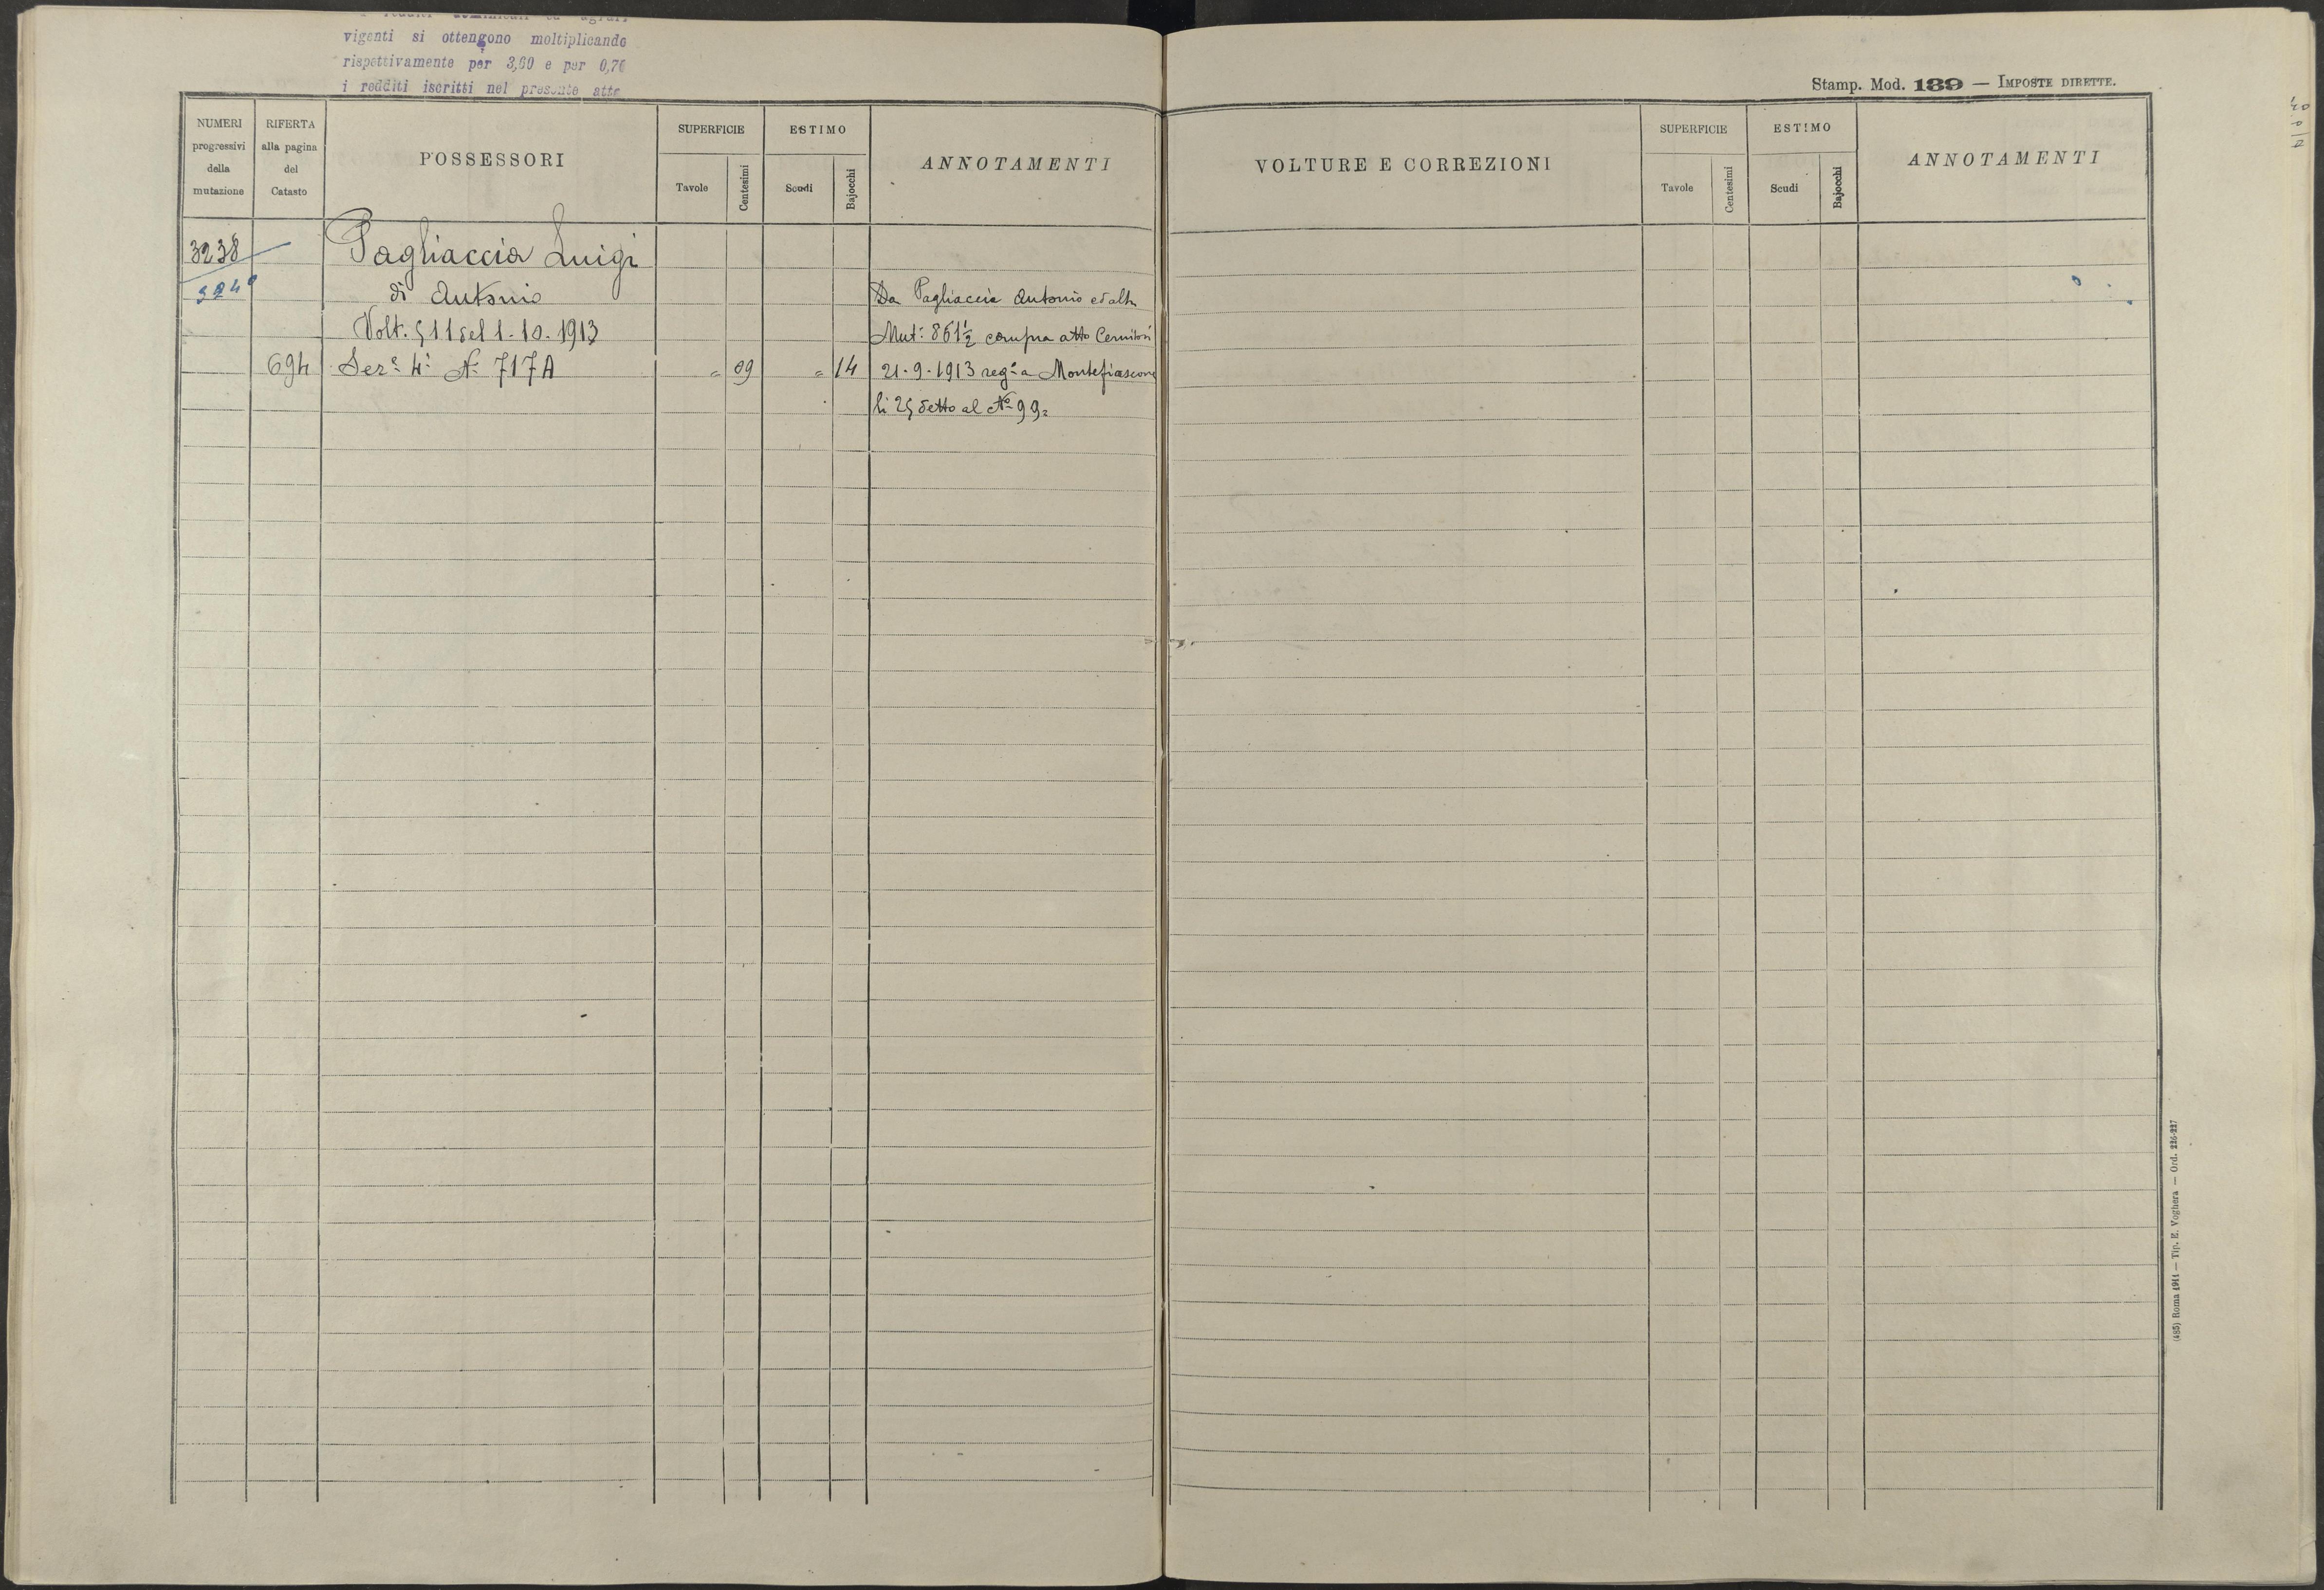 vigenti si ottengono moltiplicando
rispettivamente per 3,60 e per
i redditi iscritti nel presente atto
Stamp. Mod. 139 — Imposte dirette.
NUMERI progressivi della mutazione
RIFERTA alla pagina del Catasto
POSSESSORI
SUPERFICIE
Tavole
Centesimi
ESTIMO
Scudi
Bajocchi
ANNOTAMENTI
VOLTURE E CORREZIONI
SUPERFICIE
Tavole
Centesimi
ESTIMO
Scudi
Bajocchi
ANNOTAMENTI
3238 Pagliaccia Luigi
di Antonio
Da Pagliaccia Antonio ed altri
Volt. 511 del 1-10-1913
Mut: 861½ compra atto
694 Sez: 4ª N: 717A
" 09 " 14
21-9-1913 reg: a Montefiascone
li 25 detto al No 99=
(485) Roma 1911 — Tip. E. Voghera — Ord. 226-227